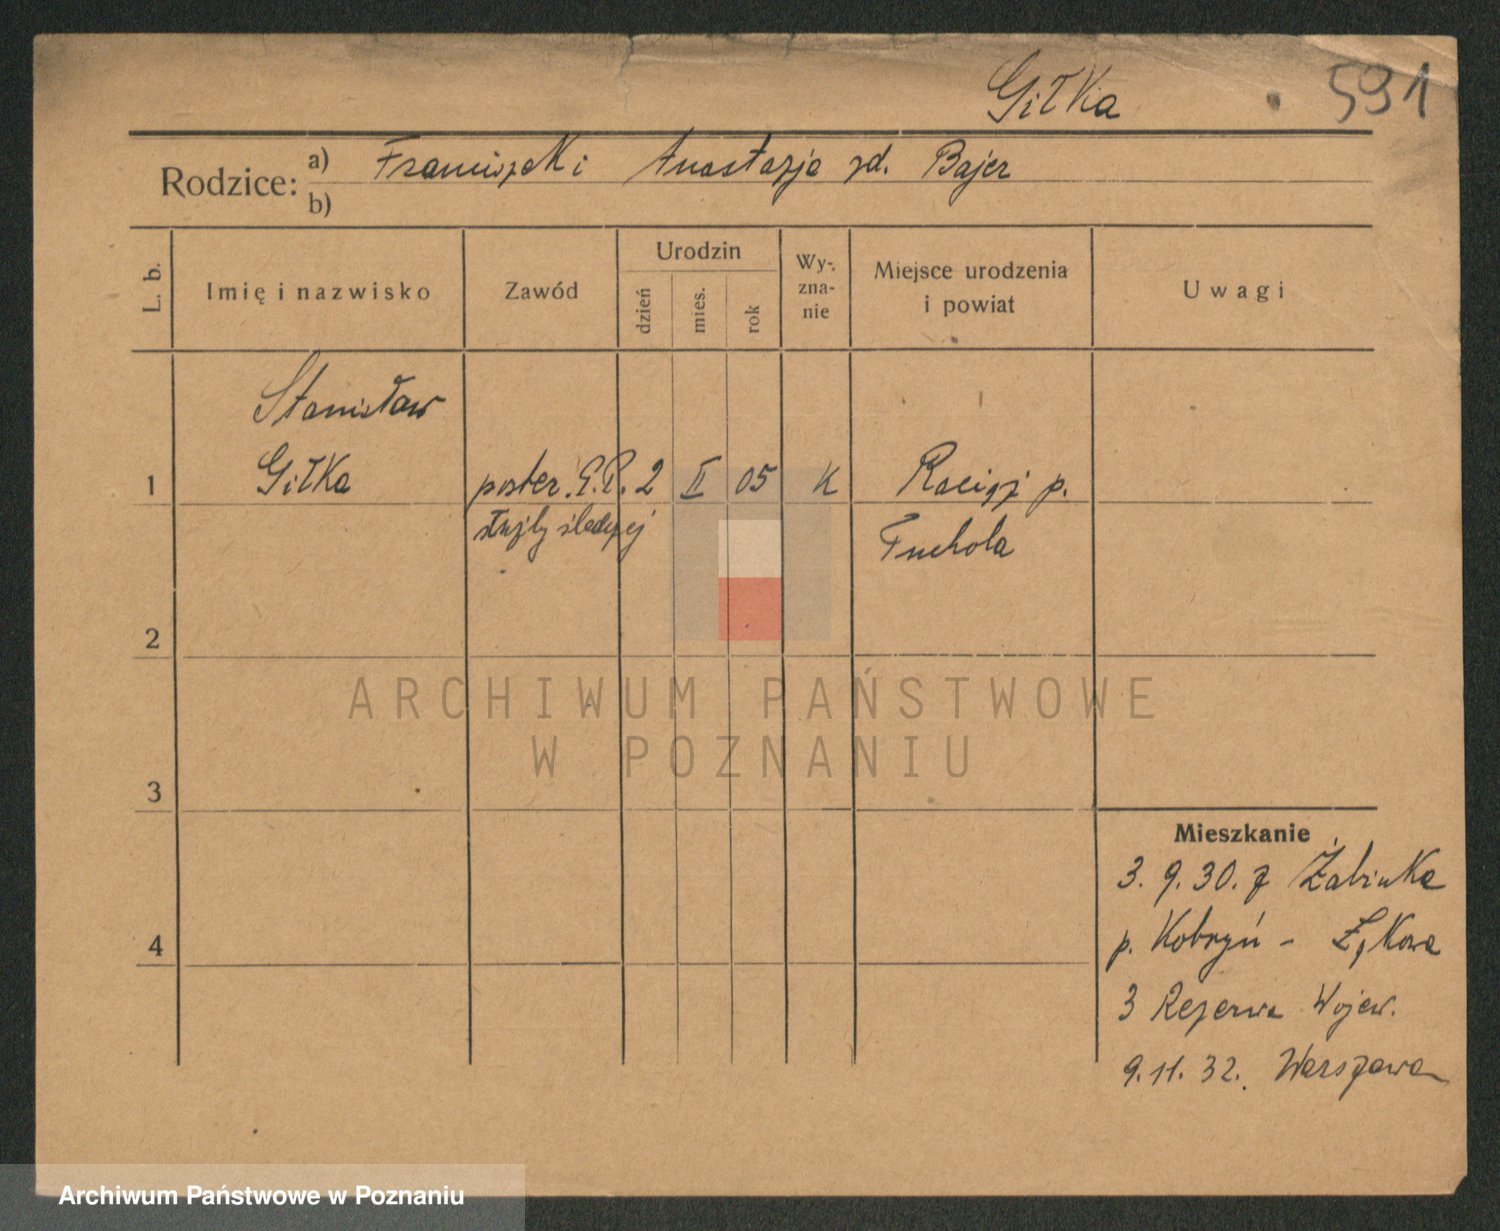 Giłka
591
Rodzice: a) Franciszek i Anastazja zd. Bajer
b)
L. b.
Imię i nazwisko
Zawód
Urodzin
dzień
mies.
rok
Wy-
zna-
nie
Miejsce urodzenia
i powiat
Uwagi
Stanisław
1 Giłka poster. P. 2 II 05 K Raciąż p.
służby śledczej Tuchola
2
3
4
Mieszkanie
3. 9. 30. z Żabinka
p. Kobryń - Łąkowa
3 Rezerwa Wojew.
9. 11. 32. Warszawa
ARCHIWUM PAŃSTWOWE
W POZNANIU
Archiwum Państwowe w Poznaniu